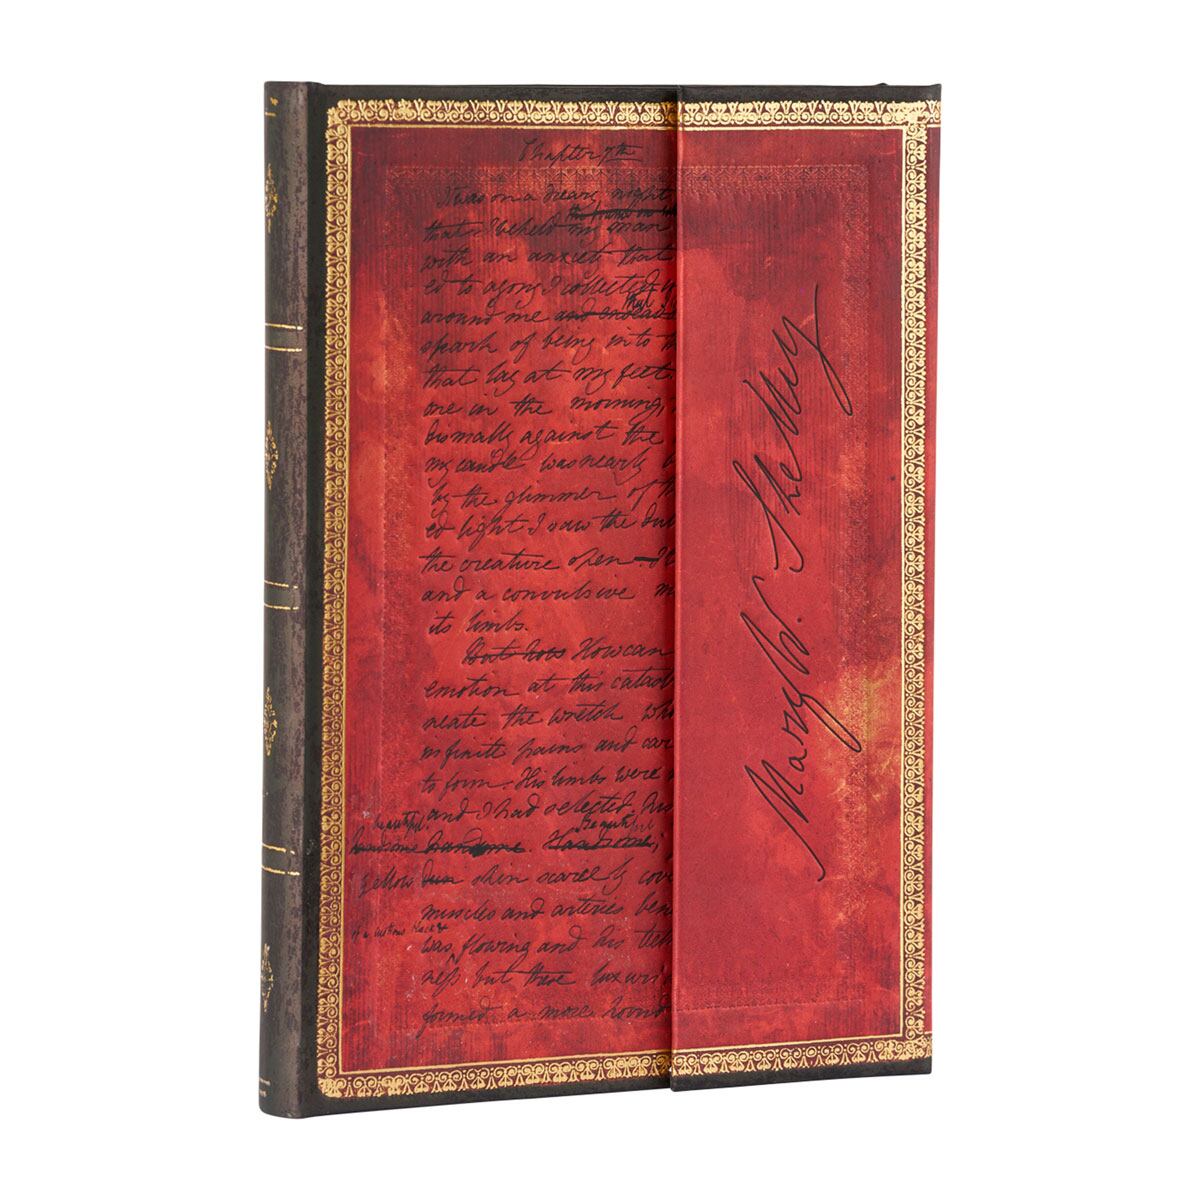 Chapter 7th
It was on a dreary night
the frame on wh
that I beheld my man
with an anxiety that
ed to agony I collected
that
around me and endeavo
spark of being into t
that lay at my feet.
one in the morning,
dismally against the
my candle was nearly b
by the glimmer of th
ed light I saw the dul
the creature open—I
and a convulsive m
its limbs.
But how How can
emotion at this catast
neate the wretch who
infinite pains and car
to form. His limbs were
and I had selected his
beautiful. beautiful
handsome handsome. Handsome;
yellow dun skin scarcely cov
muscles and arteries ben
of a lustrous black &
was flowing and his teeth
ness but these luxuri
formed a more horrid
Mary W. Shelley